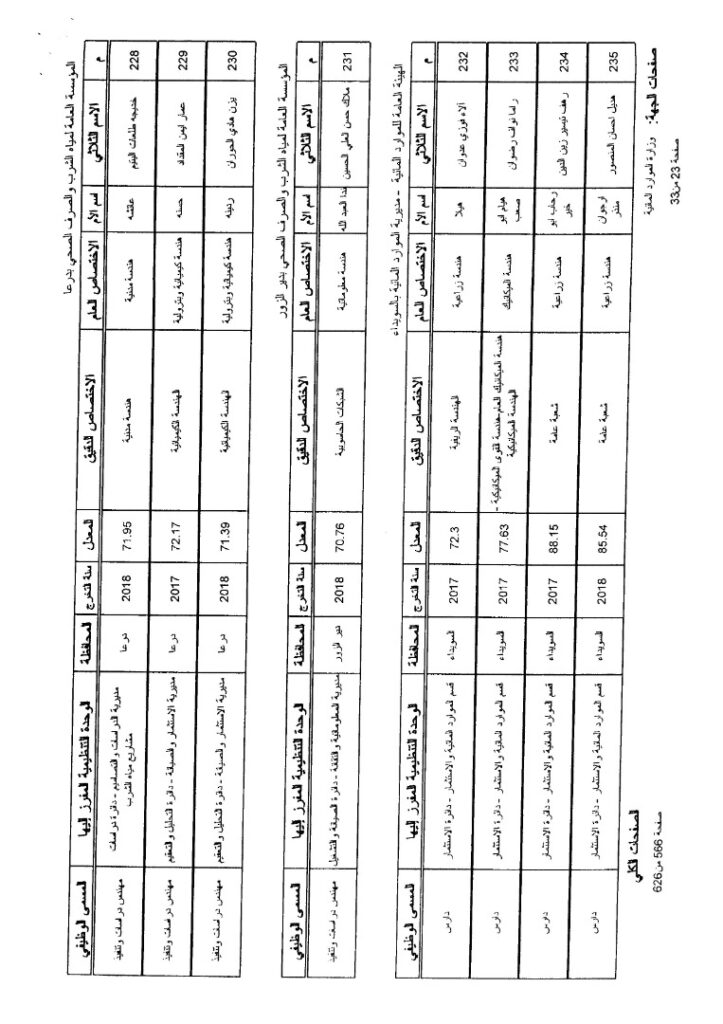 المؤسسة العامة لمياه الشرب والصرف الصحي بدرعا
م الاسم الثلاثي اسم الأم الاختصاص العام الاختصاص الدقيق المعدل سنة التخرج المحافظة الوحدة التنظيمية المفرز إليها المسمى الوظيفي
228 خديجه طلعات اليتيم عائشه هندسة مدنية هندسة مدنية 71.95 2018 درعا مديرية الدراسات والتصاميم - دائرة دراسات مشاريع مياه الشرب مهندس دراسات وتنفيذ
229 عمار ايمن المقداد حسنه هندسة كيميائية وبترولية الهندسة الكيميائية 72.17 2017 درعا مديرية الاستثمار والصيانة - دائرة التحليل والتعقيم مهندس دراسات وتنفيذ
230 يزن هادي الحوران ردينه هندسة كيميائية وبترولية الهندسة الكيميائية 71.39 2018 درعا مديرية الاستثمار والصيانة - دائرة التحليل والتعقيم مهندس دراسات وتنفيذ
المؤسسة العامة لمياه الشرب والصرف الصحي بدير الزور
م الاسم الثلاثي اسم الأم الاختصاص العام الاختصاص الدقيق المعدل سنة التخرج المحافظة الوحدة التنظيمية المفرز إليها المسمى الوظيفي
231 ملاك حسن العلي الحسين ندا العبد الله هندسة معلوماتية الشبكات الحاسوبية 70.76 2018 دير الزور مديرية المعلوماتية والتقانة - دائرة الصيانة والتشغيل مهندس دراسات وتنفيذ
الهيئة العامة للموارد المائية - مديرية الموارد المائية بالسويداء
م الاسم الثلاثي اسم الأم الاختصاص العام الاختصاص الدقيق المعدل سنة التخرج المحافظة الوحدة التنظيمية المفرز إليها المسمى الوظيفي
232 الاء فوزي عدوان هيلا هندسة زراعية الهندسة الريفية 72.3 2017 السويداء قسم الموارد المائية والاستثمار - دائرة الاستثمار دارس
233 راما نواف رضوان هيام ابو صعب هندسة الميكانيك هندسة الميكانيك العام-هندسة القوى الميكانيكية - الهندسة الميكانيكية 77.63 2017 السويداء قسم الموارد المائية والاستثمار - دائرة الاستثمار دارس
234 رهف تيسير زين الدين رحاب ابو خير هندسة زراعية شعبة عامة 88.15 2017 السويداء قسم الموارد المائية والاستثمار - دائرة الاستثمار دارس
235 هديل احسان المنصور ارجوان منذر هندسة زراعية شعبة عامة 85.54 2018 السويداء قسم الموارد المائية والاستثمار - دائرة الاستثمار دارس
صفحات الجهة: وزارة الموارد المائية
صفحة 23 من 33
الصفحات الكلي
صفحة 566 من 626